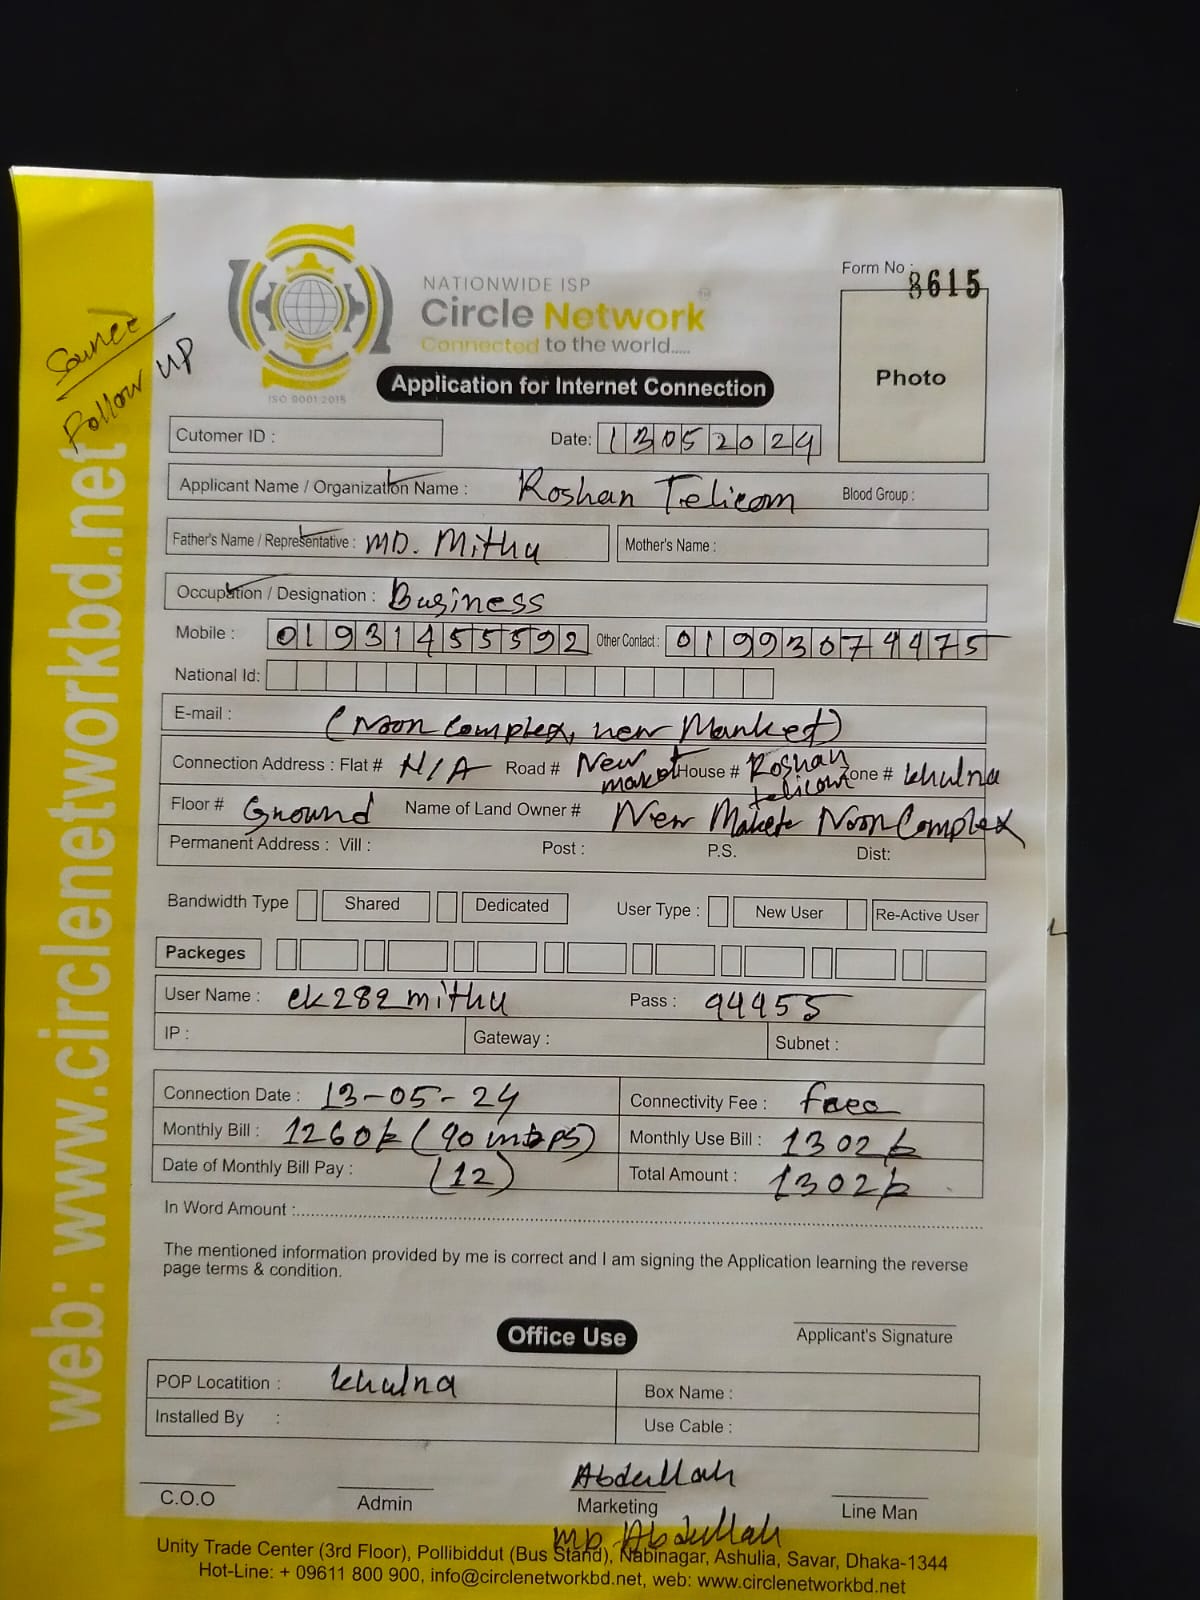 Form No : 8615
NATIONWIDE ISP
Circle Network
Connected to the world.....
ISO 9001:2015
Application for Internet Connection
Photo
Source
Follow UP
Cutomer ID :
Date: 13052024
Applicant Name / Organization Name : Roshan Telicom Blood Group :
Father's Name / Representative : MD. Mithu Mother's Name :
Occupation / Designation : Business
Mobile : 01931455592 Other Contact : 01993074475
National Id:
E-mail : (Noon Complex, new Market)
Connection Address : Flat # N/A Road # New market House # Roshan telicom Zone # khulna
Floor # Ground Name of Land Owner # New Makete Noon Complex
Permanent Address : Vill : Post : P.S. Dist:
Bandwidth Type Shared Dedicated User Type : New User Re-Active User
Packeges
User Name : ck282mithu Pass : 94455
IP : Gateway : Subnet :
Connection Date : 13-05-24 Connectivity Fee : free
Monthly Bill : 1260 (90 mbps) Monthly Use Bill : 1302
Date of Monthly Bill Pay : (12) Total Amount : 1302
In Word Amount :
The mentioned information provided by me is correct and I am signing the Application learning the reverse
page terms & condition.
Applicant's Signature
Office Use
POP Locatition : khulna Box Name :
Installed By : Use Cable :
Abdullah
C.O.O Admin Marketing Line Man
MD Abdullah
Unity Trade Center (3rd Floor), Pollibiddut (Bus Stand), Nabinagar, Ashulia, Savar, Dhaka-1344
Hot-Line: + 09611 800 900, info@circlenetworkbd.net, web: www.circlenetworkbd.net
web: www.circlenetworkbd.net